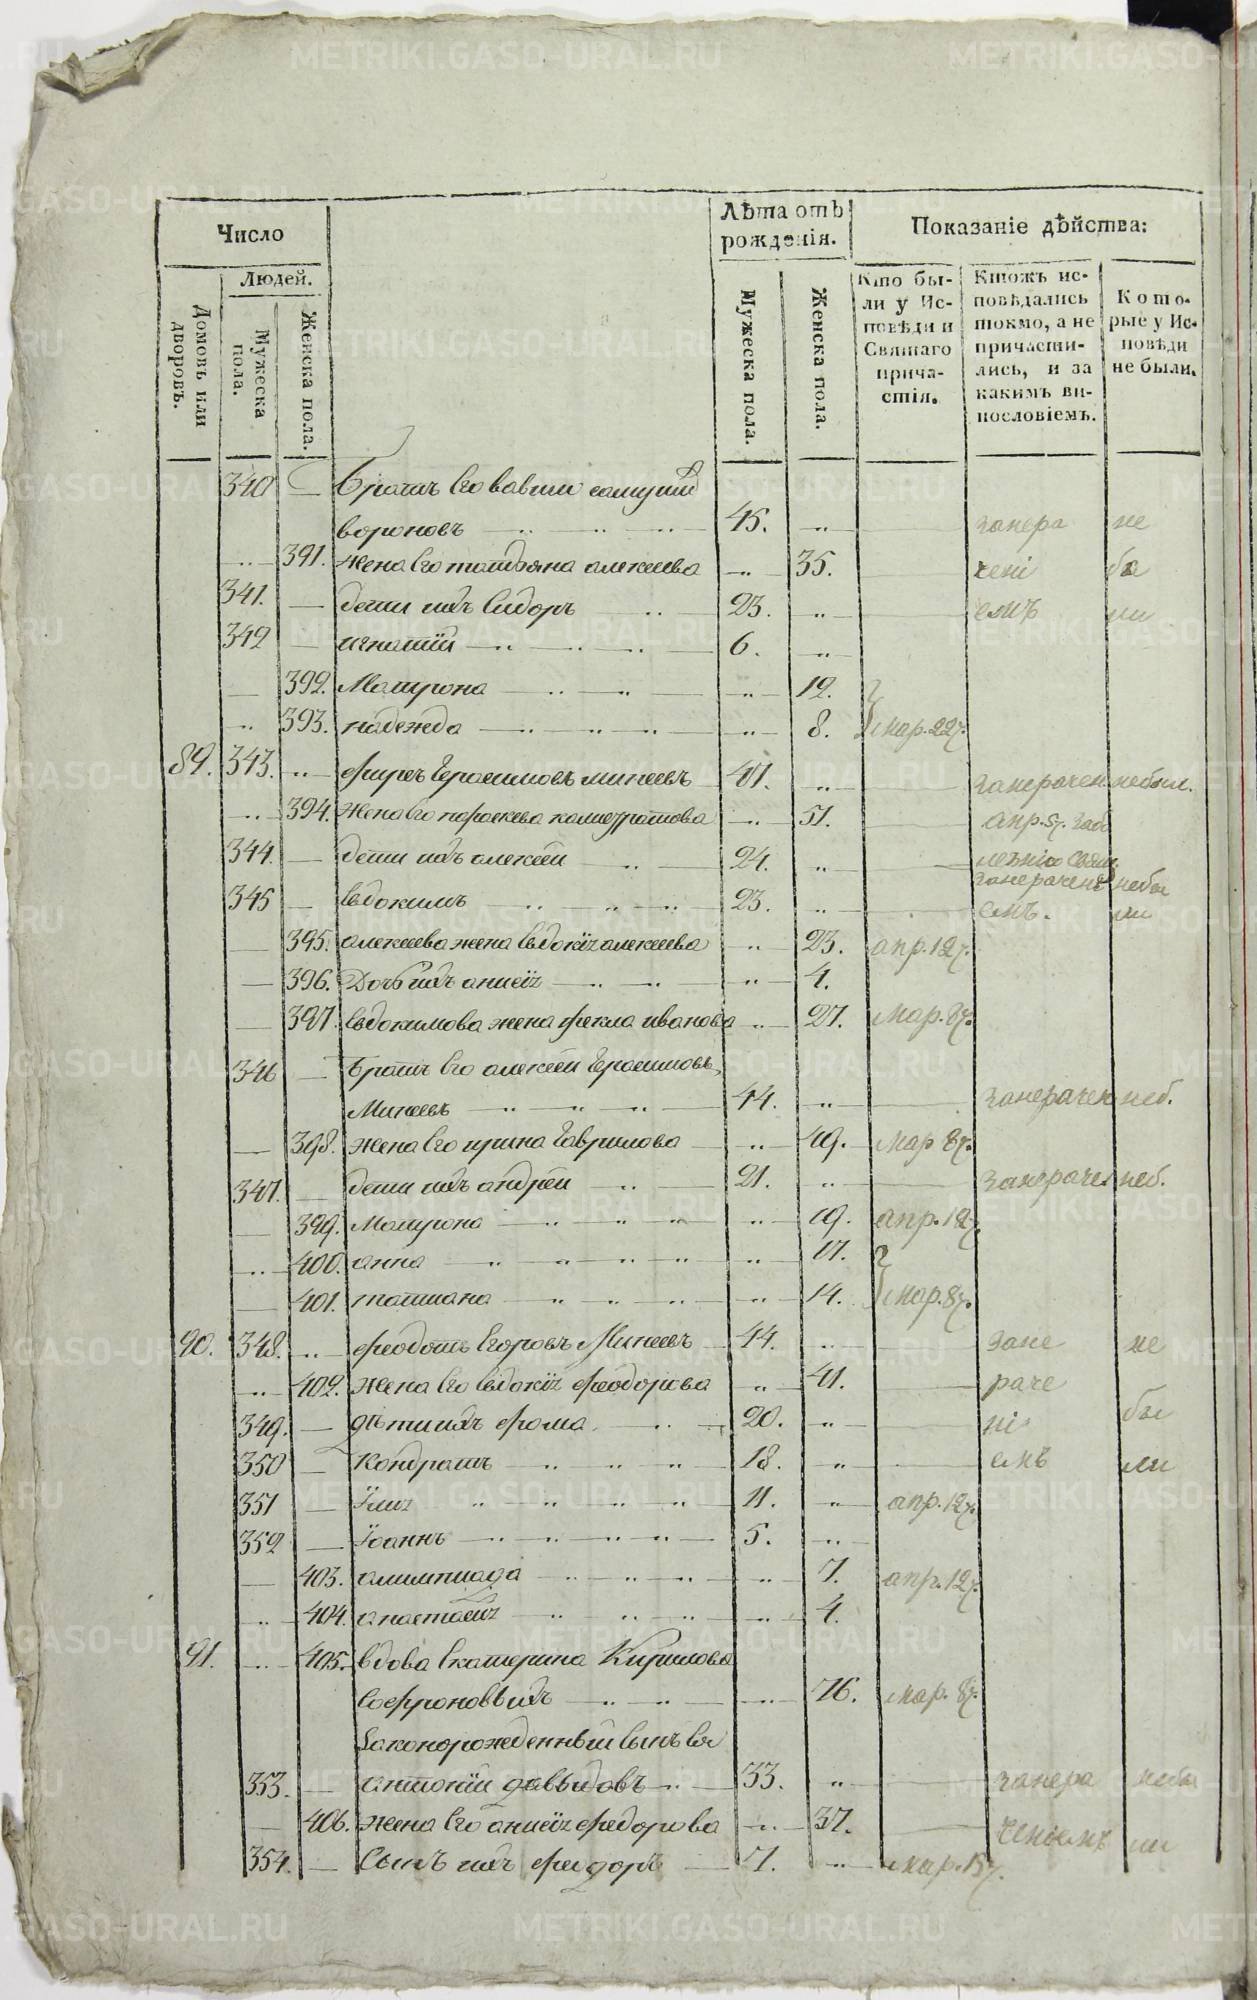 Число
Людей.
Домовъ или дворовъ.
Мужеска пола.
Женска пола.
Лѣта отъ рожденія.
Мужеска пола.
Женска пола.
Показаніе дѣйства:
Кто были у Исповѣди и Святаго причастія.
Ктожъ исповѣдались токмо, а не причастились, и за какимъ винословіемъ.
Которые у Исповѣди не были.
340 — братъ его вавило
вороновъ — 45. занера не
391. жена его татьяна алексеева 35. чені бы
341. — дети ихъ сидоръ 23. емъ ли
342 — игнатій — 6.
392. Матрона — 12.
393. надежда — 8. мар. 22.
89. 343. Герасимовъ минеевъ 47. занерачен небыл.
394. жена его параскева 51. апр. 5.
344. — дети ихъ алексей 24.
345 — Евдокимъ 23. занерачені небы
емъ. ли
395. алексеева жена Евдокія алексеева 23. апр. 12.
396. Дочь ихъ анисія — 4.
397. Евдокимова жена фекла иванова 27. мар. 8.
346 — братъ его алексей Герасимовъ
Минеевъ — 44. занерачен неб.
398. жена его ирина Гаврилова 49. мар 8.
347. — дети ихъ андрей 21. занераче неб.
399. Матрона — 19. апр. 12.
400. анна 17.
401. татиана 14. мар. 8.
90. 348. феодотъ Егоровъ Минеевъ 44. зане не
402. жена его Евдокія феодорова 41. раче
349. — дѣти ихъ фома 20. ні бы
350 — Кондратъ 18. емъ ли
351 — Iлія 11. апр. 12.
352 — Iоаннъ 5.
403. олимпиада 7. апр. 12.
404. анастасія 4.
91. 405. вдова Екатерина Кирилова
Софроновыхъ 76. мар. 8.
Законорожденный сынъ ея
353. — антоній давыдовъ 33. занера небы
406. жена его анисія федорова 37. ченіемъ ли
354. — Сынъ ихъ феидоръ 7. мар. 15.
METRIKI.GASO-URAL.RU